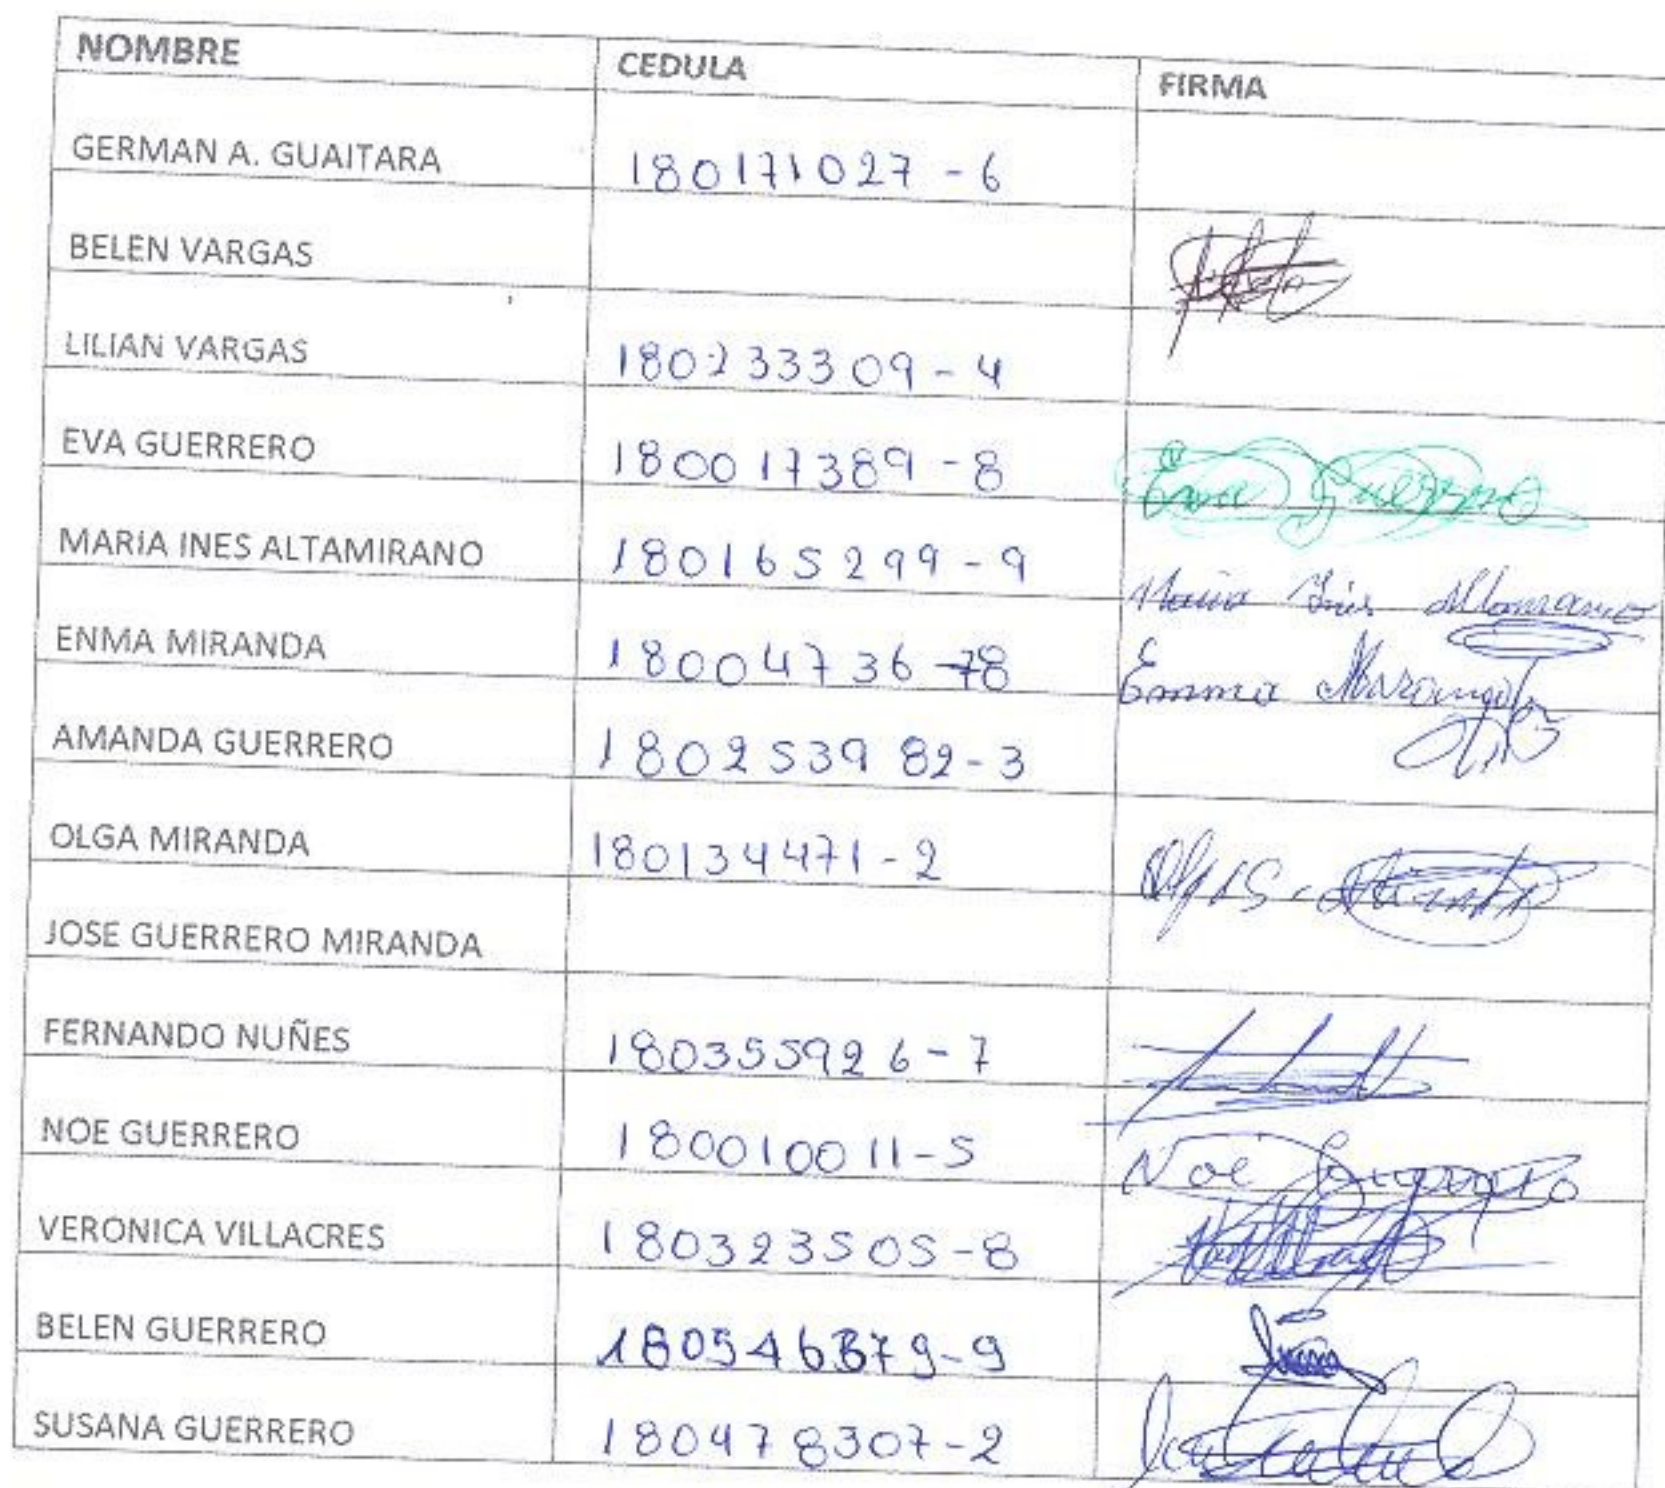 NOMBRE CEDULA FIRMA
GERMAN A. GUAITARA 180171027-6
BELEN VARGAS
LILIAN VARGAS 180233309-4
EVA GUERRERO 180017389-8 Eva Guerrero
MARIA INES ALTAMIRANO 180165299-9 Maria Inés Altamirano
ENMA MIRANDA 18004736-78 Emma
AMANDA GUERRERO 180253982-3
OLGA MIRANDA 180134471-2
JOSE GUERRERO MIRANDA
FERNANDO NUÑES 180355926-7
NOE GUERRERO 180010011-5 Noé Guerrero
VERONICA VILLACRES 180323505-8
BELEN GUERRERO 180546379-9
SUSANA GUERRERO 180478307-2